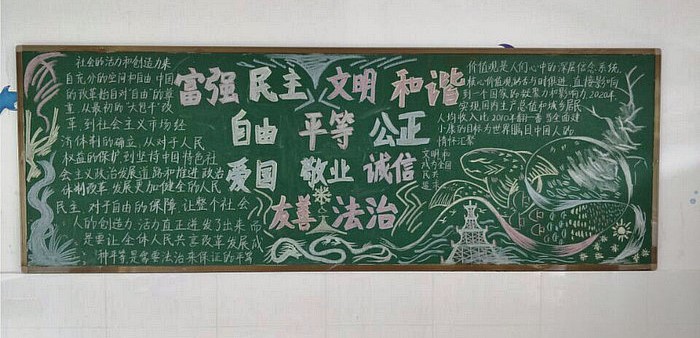 社会的活力和创造力来
自充分的空间和自由 中国
的改革起自对"自由"的尊
重, 从最初的"大包干"改
革, 到社会主义市场经
济体制的确立, 从对于人民
权益的保护到坚持中国特色社
会主义政治发展道路和推进政治
体制改革 发展更加健全的人民
民主, 对于自由的保障, 让整个社会
人的创造力、活力真正迸发了出来 而
是要让全体人民共享改革发展成
种平等是需要法治来保证的平等
富强 民主 文明 和谐
自由 平等 公正
爱国 敬业 诚信
友善 法治
价值观是人们心中的深层信念系统
核心价值观的与时俱进, 直接影响
到一个国家的凝聚力和影响力, 2020年
实现国内生产总值和城乡居民
人均收入比2010年翻一番 当全面建
小康的目标为世界瞩目中国人的
情怀汇聚
文明和
成为全国
民共